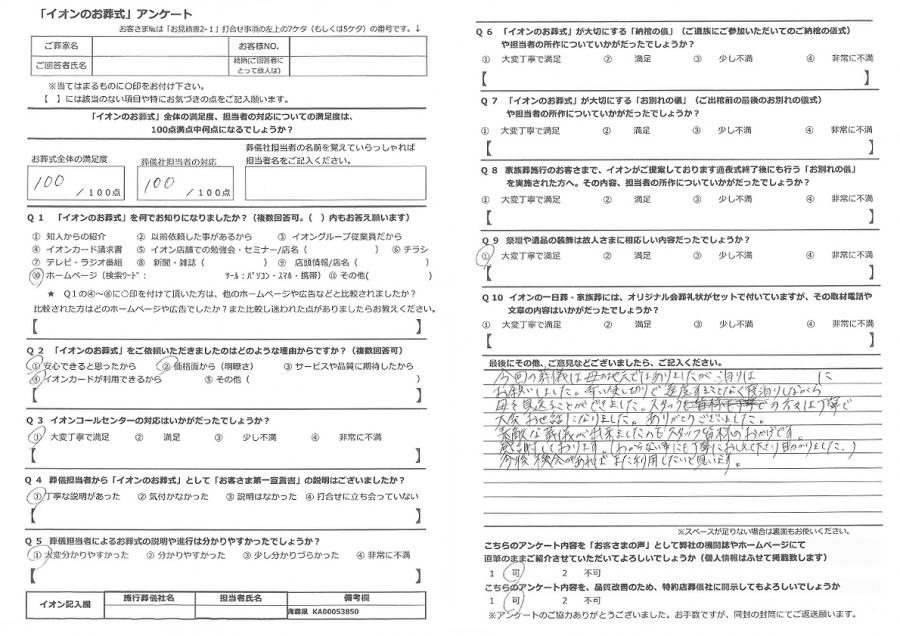 「イオンのお葬式」アンケート
お客さま№は「お見積書2-1」打合せ事項の左上の7ケタ（もしくは5ケタ）の番号です。↓
ご葬家名
お客様NO.
ご回答者氏名
続柄(ご回答者にとって故人は)
※当てはまるものに○印をお付け下さい。
【　】には該当のない項目や特にお気づきの点をご記入願います。
「イオンのお葬式」全体の満足度、担当者の対応についての満足度は、
100点満点中何点になるでしょうか？
お葬式全体の満足度
100 /100点
葬儀社担当者の対応
100 /100点
葬儀社担当者の名前を覚えていらっしゃれば
担当者名をご記入ください。
Q１　「イオンのお葬式」を何でお知りになりましたか？（複数回答可。(　) 内もお答え願います）
① 知人からの紹介　② 以前依頼した事があるから　③ イオングループ従業員だから
④ イオンカード請求書　⑤ イオン店舗での勉強会・セミナー/店名（　）⑥ チラシ
⑦ テレビ・ラジオ番組　⑧ 新聞・雑誌（　）⑨ 店頭情報/店名（　）
⑩ ホームページ（検索ﾜｰﾄﾞ：　ﾂｰﾙ：ﾊﾟｿｺﾝ・ｽﾏﾎ・携帯）⑪ その他(　)
★ Q１の④～⑧に○印を付けて頂いた方は、他のホームページや広告などと比較されましたか？
比較された方はどのホームページや広告でしたか？また比較し迷われた点がありましたらお教えください。
【　】
Q２　「イオンのお葬式」をご依頼いただきましたのはどのような理由からですか？（複数回答可）
① 安心できると思ったから　② 価格面から（明瞭さ）　③ サービスや品質に期待したから
④ イオンカードが利用できるから　⑤ その他（　）
【　】
Q３　イオンコールセンターの対応はいかがだったでしょうか？
① 大変丁寧で満足　② 満足　③ 少し不満　④ 非常に不満
【　】
Q４　葬儀担当者から「イオンのお葬式」として「お客さま第一宣言書」の説明はございましたか？
① 丁寧な説明があった　② 気付かなかった　③ 説明はなかった　④ 打合せに立ち会っていない
【　】
Q５　葬儀担当者によるお葬式の説明や進行は分かりやすかったでしょうか？
① 大変分かりやすかった　② 分かりやすかった　③ 少し分かりづらかった　④ 非常に不満
【　】
イオン記入欄
施行葬儀社名
担当者氏名
備考欄
KA00053850
Q６　「イオンのお葬式」が大切にする「納棺の儀」（ご遺族にご参加いただいてのご納棺の儀式）
や担当者の所作についていかがだったでしょうか？
① 大変丁寧で満足　② 満足　③ 少し不満　④ 非常に不満
【　】
Q７　「イオンのお葬式」が大切にする「お別れの儀」（ご出棺前の最後のお別れの儀式）
や担当者の所作についていかがだったでしょうか？
① 大変丁寧で満足　② 満足　③ 少し不満　④ 非常に不満
【　】
Q８　家族葬施行のお客さまで、イオンがご提案しております通夜式終了後にも行う「お別れの儀」
を実施された方へ。その内容、担当者の所作についていかがだったでしょうか？
① 大変丁寧で満足　② 満足　③ 少し不満　④ 非常に不満
【　】
Q９　祭壇や遺品の装飾は故人さまに相応しい内容だったでしょうか？
① 大変丁寧で満足　② 満足　③ 少し不満　④ 非常に不満
【　】
Q10　イオンの一日葬・家族葬には、オリジナル会葬礼状がセットで付いていますが、その取材電話や
文章の内容はいかがだったでしょうか？
① 大変丁寧で満足　② 満足　③ 少し不満　④ 非常に不満
【　】
最後にその他、ご意見などございましたら、ご記入ください。
今回の葬儀は母の地元ではありましたが 泊りは　に
お願いしました。貸し切りで遠慮することなく寝泊りしながら
母を見送ることができました。スタッフの方々は丁寧で
大変お世話になりました。ありがとうございました。
素敵な葬儀が出来ましたのもスタッフ皆様のおかげです。
感謝しております。（わからない事にも丁寧にお応え下さり助かりました。）
今後 機会があれば また利用したいと思います。
※スペースが足りない場合は裏面もお使いください。
こちらのアンケート内容を「お客さまの声」として弊社の機関誌やホームページにて
直筆のままご紹介させていただいてよろしいでしょうか（個人情報はふせて掲載致します）
1　可　2　不可
こちらのアンケート内容を、品質改善のため、特約店葬儀社に開示してもよろしいでしょうか
1　可　2　不可
※アンケートのご協力ありがとうございました。お手数ですが、同封の封筒にてご返送願います。